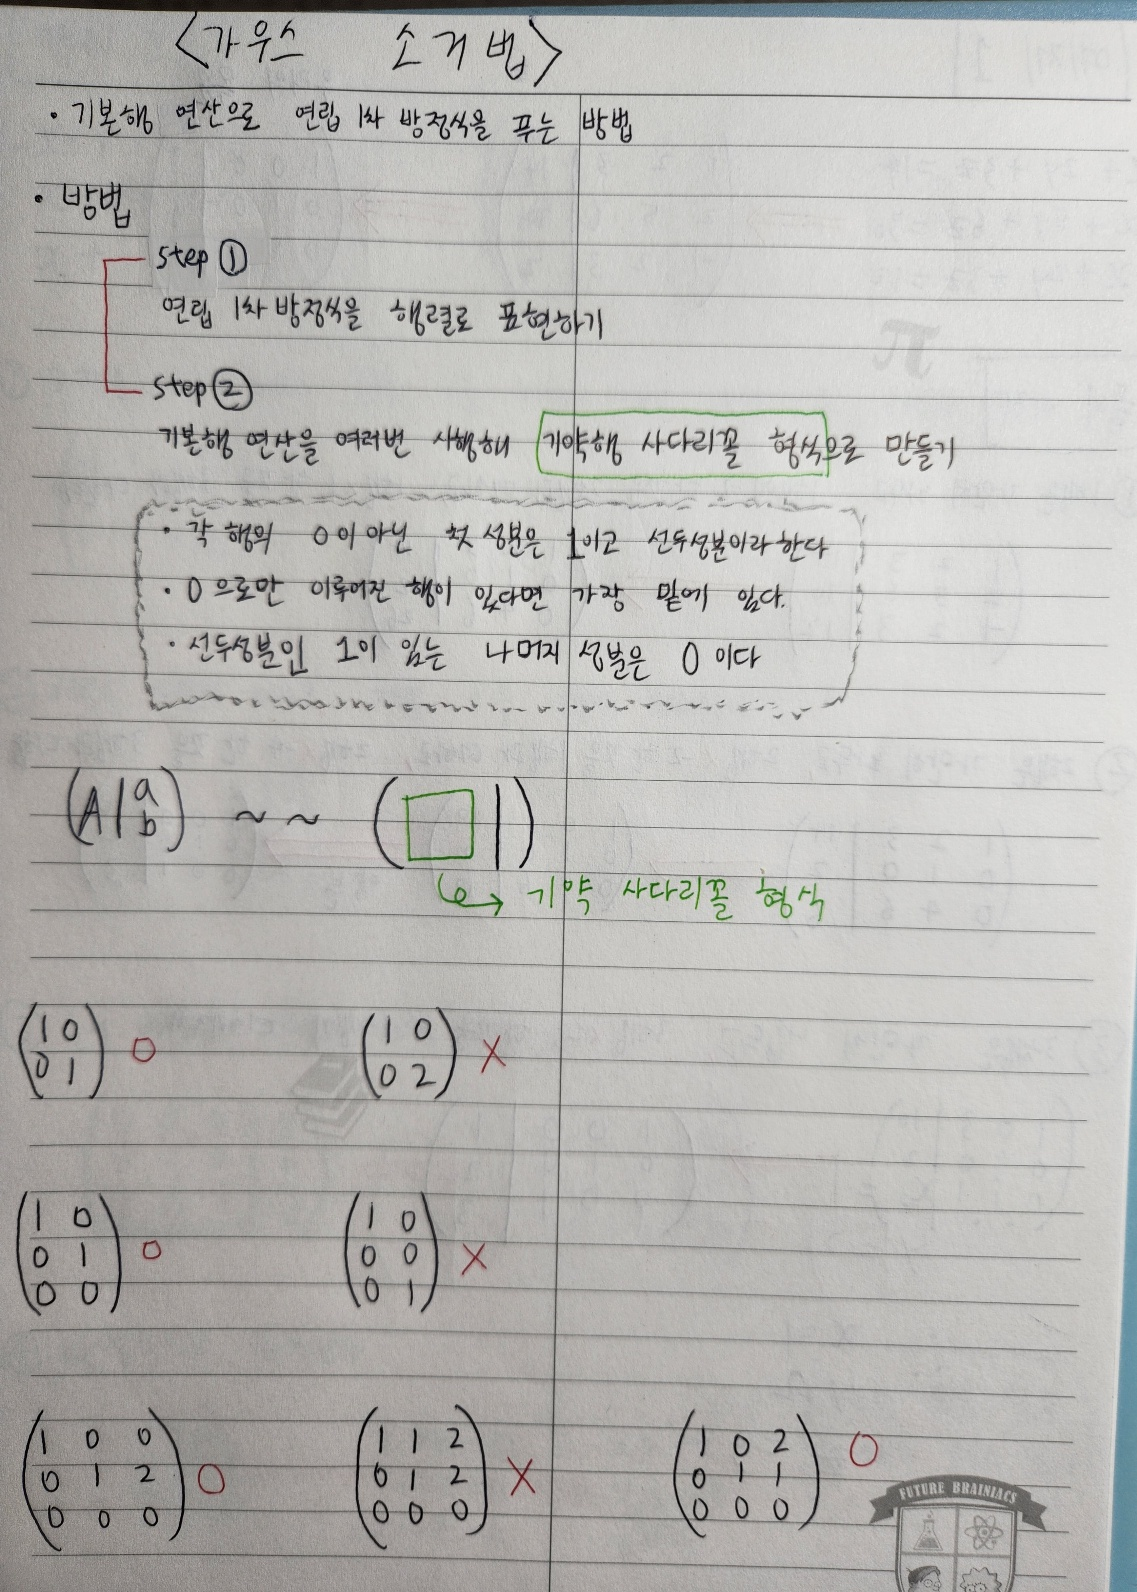 <가우스 소거법>
· 기본행 연산으로 연립 1차 방정식을 푸는 방법
· 방법
step ①
연립 1차 방정식을 행렬로 표현하기
step ②
기본행 연산을 여러번 시행해 기약행 사다리꼴 형식으로 만들기
· 각 행의 0이 아닌 첫 성분은 1이고 선두성분이라 한다
· 0으로만 이루어진 행이 있다면 가장 밑에 있다.
· 선두성분인 1이 있는 나머지 성분은 0이다
(A | a b) ~ ~ ( □ | )
↳ 기약 사다리꼴 형식
1 0   1 0
0 1 O   0 2 X
1 0   1 0
0 1 O   0 0 X
0 0   0 1
1 0 0   1 1 2   1 0 2 O
0 1 2 O   0 1 2 X   0 1 1
0 0 0   0 0 0   0 0 0
FUTURE BRAINIACS